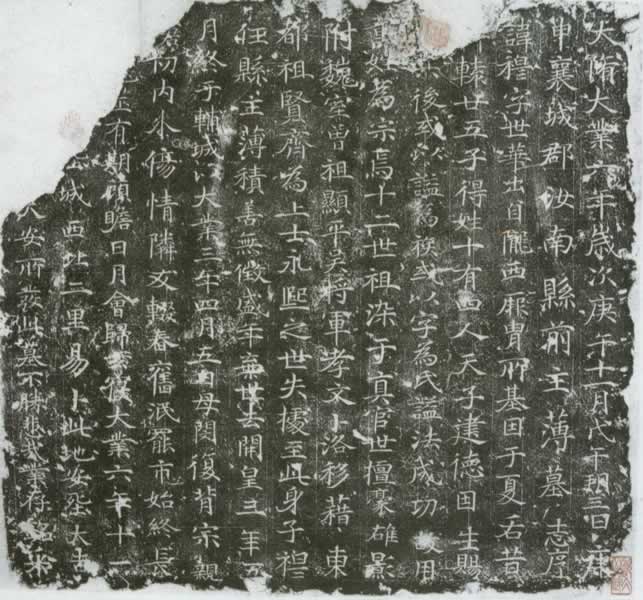 大隋大業六年歲次庚午十一月戊午朔三日庚
申襄城郡汝南縣前主薄墓志序
諱穆字世華出自隴西厥胄所基因于夏后昔
轅廿五子得姓十有四人天子建德因生賜
後或謚為族或以字為氏謚法成功用
為宗焉十二世祖于真官世擅豪雄影
附魏宰曾祖顯平吳將軍孝文卜洛移藉東
都祖賢齊為上士永熙之世失至此身子
任縣主薄積善無徵盛年棄世去開皇三年
月終于輔城以大業三年四月五日母閔復背宗親
切內外傷情隣友輟舂舊泯罷市始終長
有期傾瞻日月會歸大業六年十一
城西北二里易卜此地安大吉
安所墓不勝業存銘